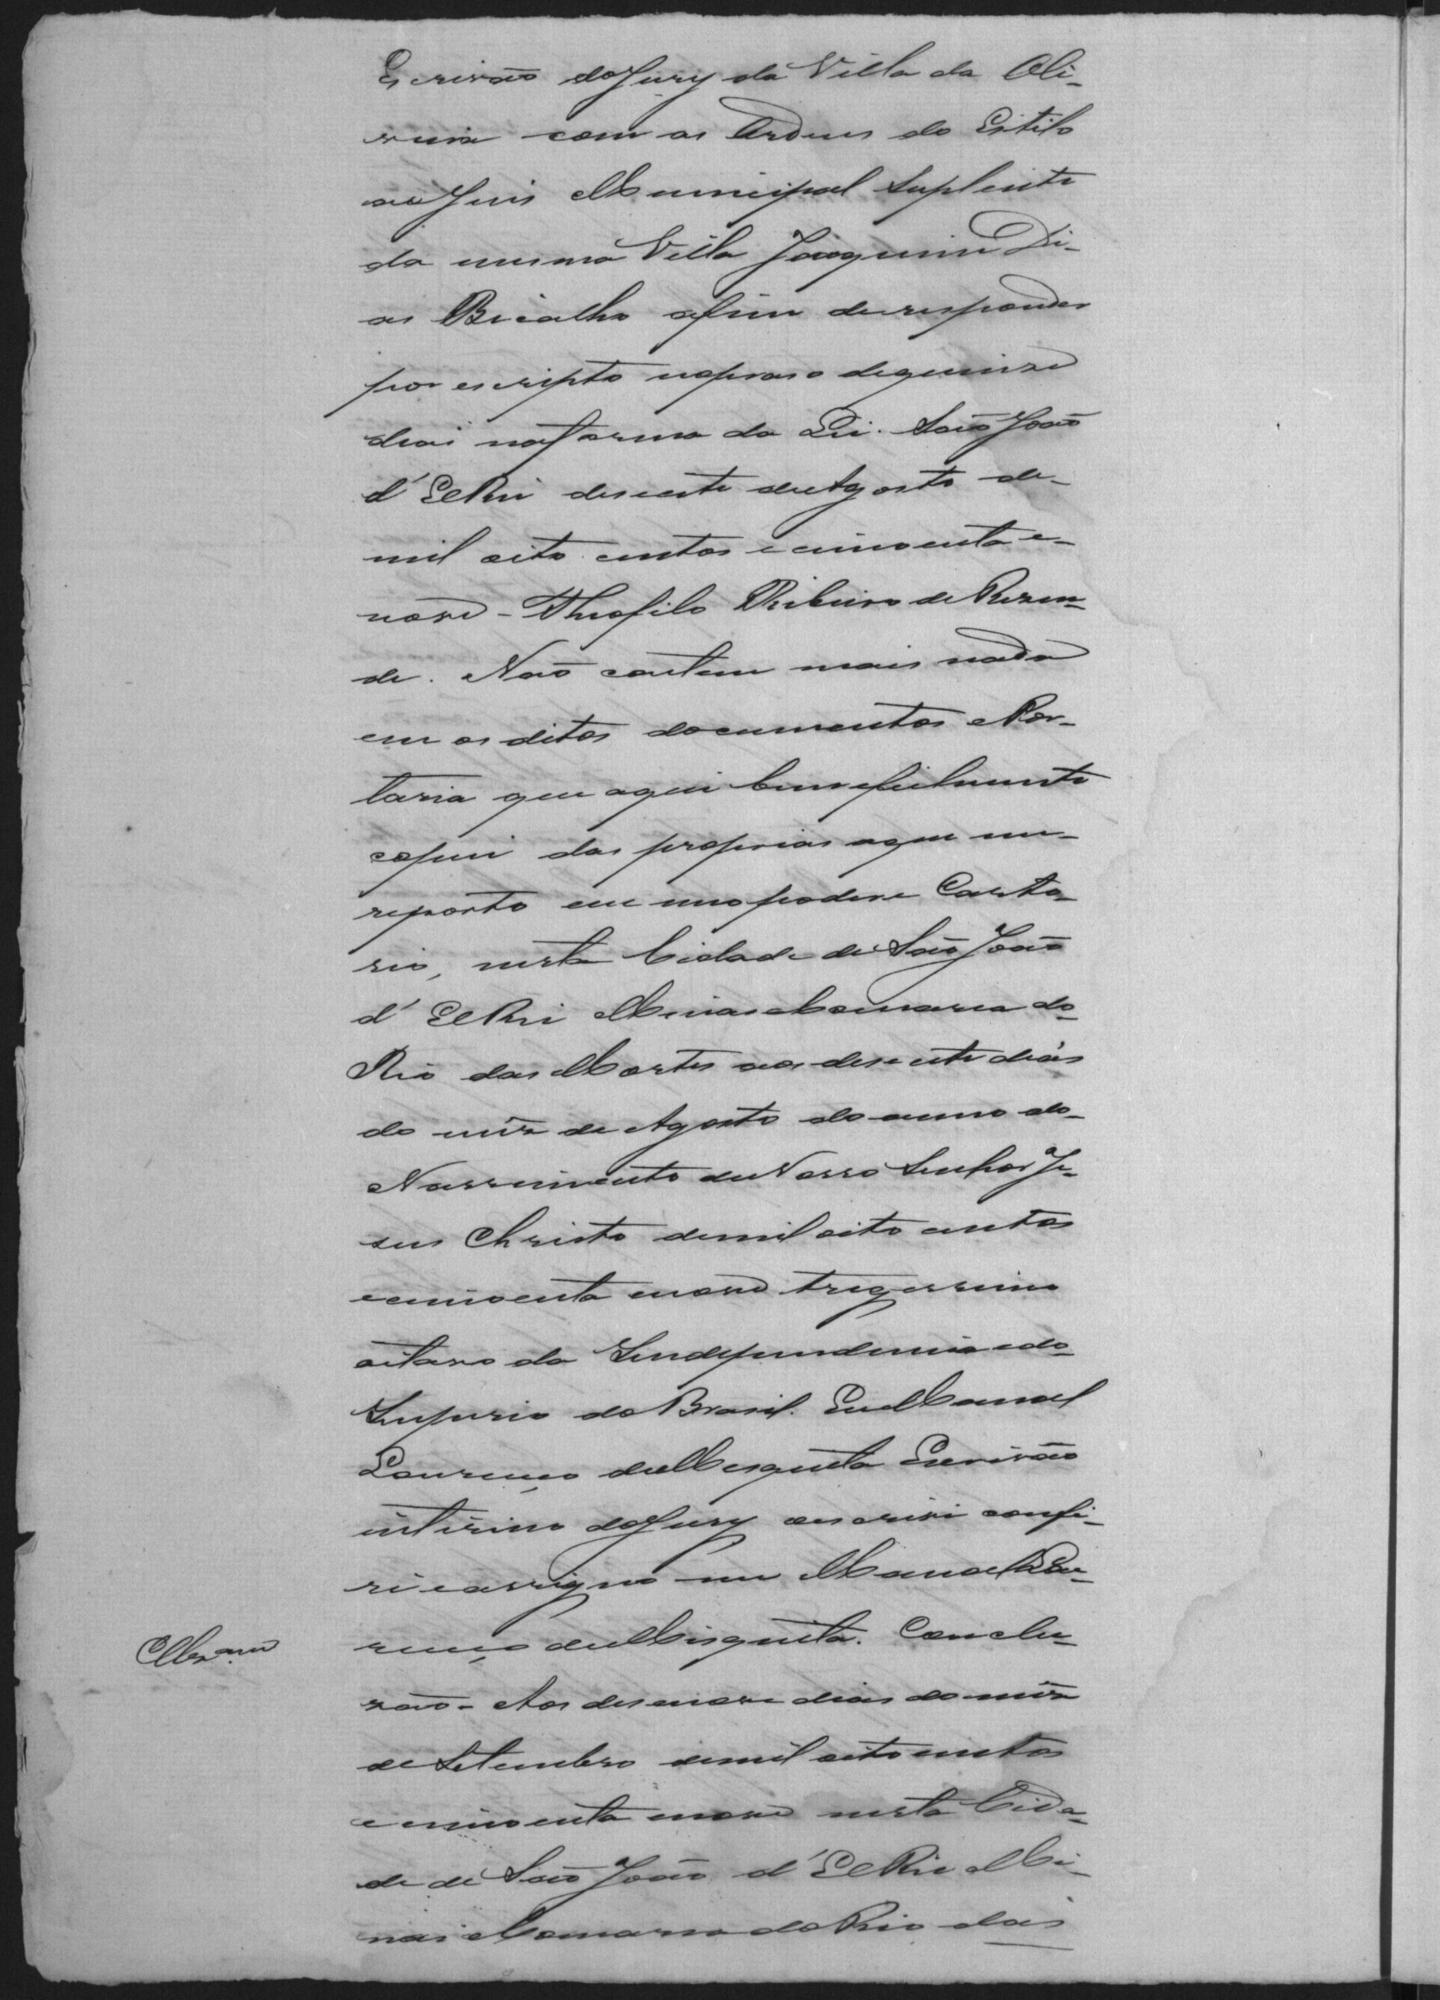 Escrivão do Jury da Villa da Oli-
veira com as Ordens do Estilo
ao Juis Municipal Suplente
da mesma Villa Joaquim Di-
as Bicalho afim de responder
por escripto no praso de quinze
dias na forma da Lei. São João
d'ElRei desesete de Agosto de
mil oito centos e cincoenta e
nove - Theofilo Ribeiro de Rezen-
de. Não contem mais nada
em os ditos documentos e Por-
taria que aqui bem e fielmente
copiei dos proprios a que me
reporto em meo poder e Carto-
rio, nesta Cidade de São João
d'ElRei Minas e Comarca do
Rio das Mortes aos desesete dias
do mêz de Agosto do anno do
Nascimento de Nosso Senhor Je-
sus Christo de mil oito centos
e cincoenta e nove trigessimo
oitavo da Independencia e do
Imperio do Brasil. Eu Manoel
Lourenço de Mesquita Escrivão
interino do Jury o escrivi confi-
ri e assigno me Manoel Lou-
renço de Misquita. Conclu-
são - Aos desenove dias do mêz
de Setembro de mil oito centos
e cincoenta e nove nesta Cida-
de de São João d'ElRei Mi-
nas e Comarca do Rio das